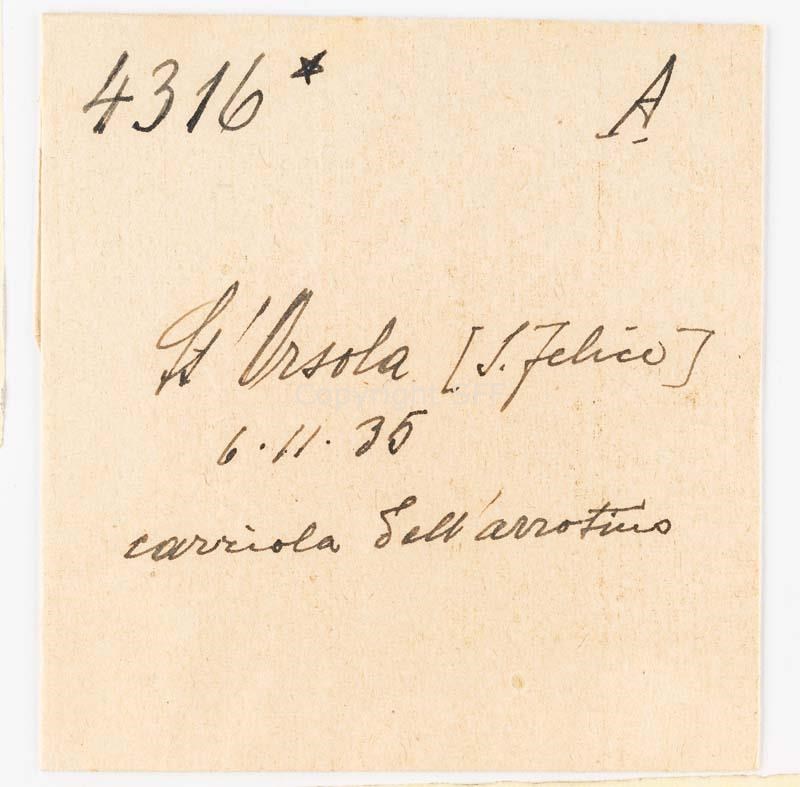 4316* A
St'Orsola [S. Felice]
6.11.35
carriola dell'arrotino